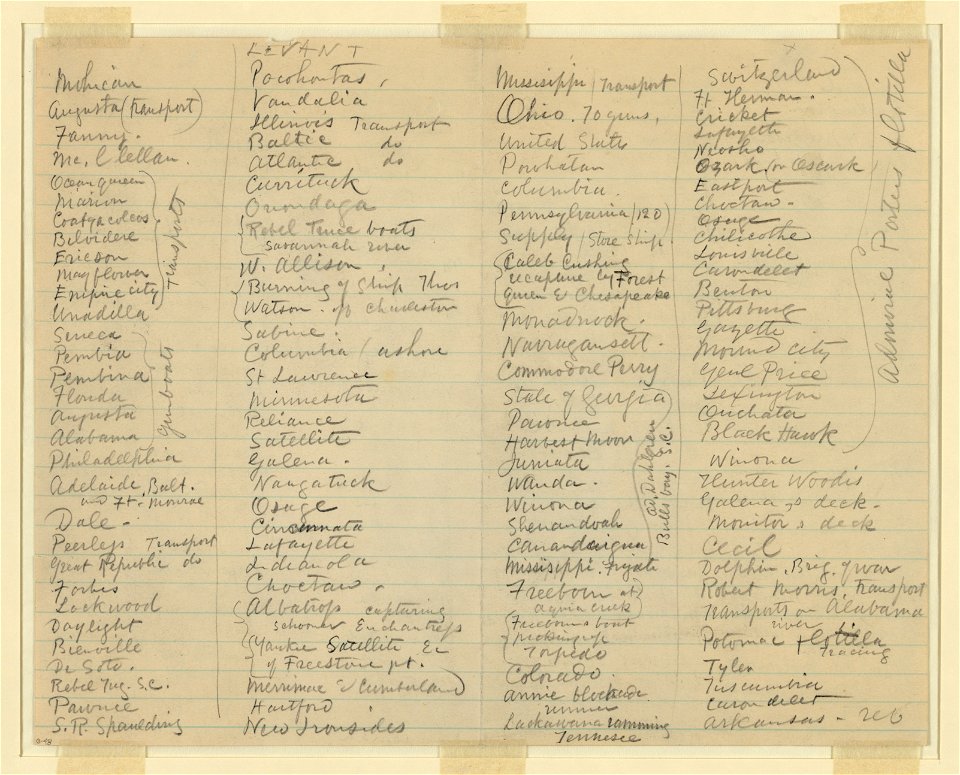 Mohican
Augusta (transport)
Fanny.
Mc. Clellan.
Ocean queen
Marion
Coatzacolcos
Belvidere
Ericson
Mayflower
Empire city
Unadilla
Transports
Seneca
Pembia
Pembina
Florida
Augusta
Alabama
Gunboats
Philadelphia
Adelaide, Balt.
and Ft. Monroe
Dale -
Peerless Transport
Great Republic do
Forbes
Lockwood
Daylight
Bienville
De Soto.
Rebel Tug. S.C.
Pawnee
S. R. Spaulding
LEVANT
Pocohontas,
Vandalia
Illinois Transport
Baltic do
Atlantic do
Currituck
Onondaga
Rebel Fence boats
Savannah river
W. Allison,
Burning of Ship Thos
Watson. off Charleston
Sabine.
Columbia / ashore
St Lawrence
Minnesota
Reliance
Satellite
Galena.
Naugatuck
Osage
Cincinnata
Lafayette
Indianola
Choctaw.
Albatross capturing
Schooner Enchantress
Yankee Satellite &c
of Freestone pt.
Merrimac & Cumberland
Hartford
New Ironsides
Missisippi / Transport
Ohio. 70 guns,
United States
Powhatan
Columbia.
Pennsylvania / 120
Supply / Store Ship.
Caleb Cushing
recapture by Forest
Queen & Chesapeake
Monadnock.
Narragansett.
Commodore Perry
State of Georgia
Pawnee
Harvest Moon
Juniata
Wanda.
Winona
Shenandoah
Canandaigua
ad. Dahlgren
Bulls bay. S.C.
Missisippi. Frigate
Freeborn at
aquia creek
Freeborns boat
picking up
Torpedo
Colorado
Annie blockade
runner
Lackawana ramming
Tennesee
Switzerland
Ft. Herman.
Cricket
Lafayette
Neosho
Ozark, or Oscark
Eastport
Choctaw.
Osage
Chilicothe
Louisville
Carondelet
Benton
Pittsburg
Gazette
Mound city
Genl Price
Lexington
Ouchata
Black Hawk
Admiral Porters flotilla
Winona
Hunter Woodis
Galena, s deck.
Monitor, s deck
Cecil
Dolphin. Brig. of war
Robert Morris, Transport
Transports on Alabama
river
Potomac flotilla
Tracing
Tyler
Tuscumbia
Carondelet
Arkansas - reb